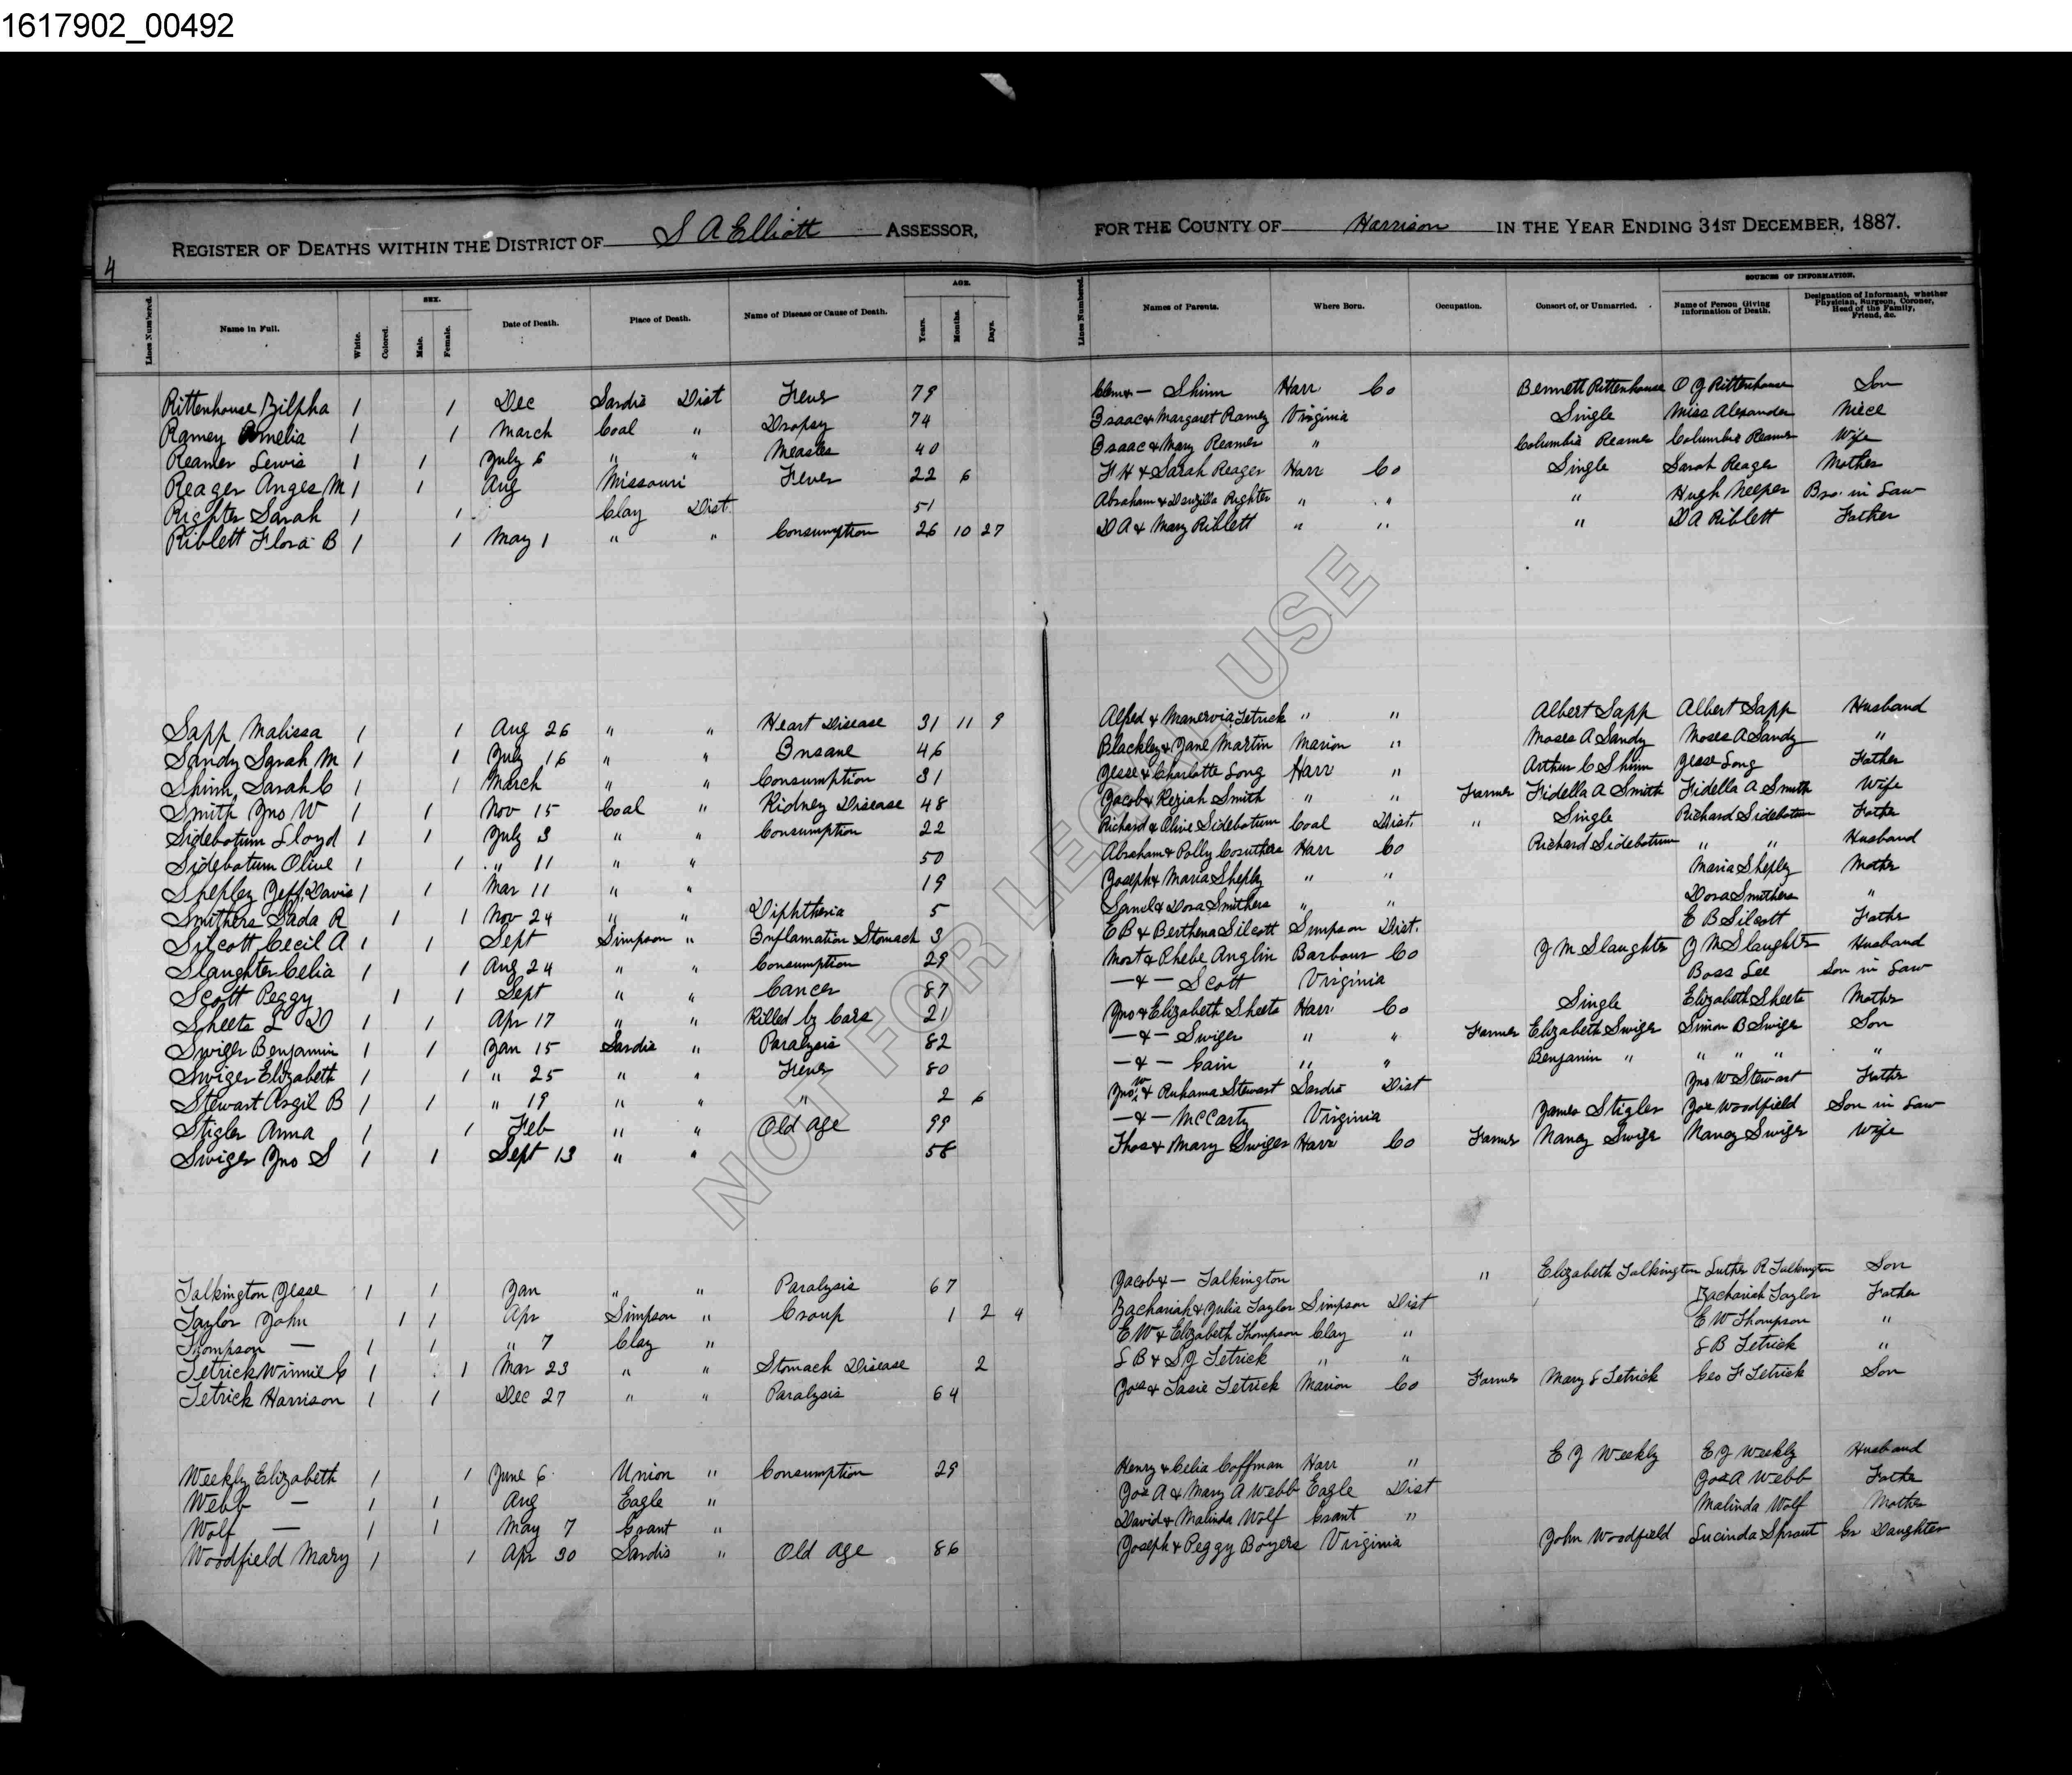 1617902_00492
4
REGISTER OF DEATHS WITHIN THE DISTRICT OF S A Elliott ASSESSOR, FOR THE COUNTY OF Harrison IN THE YEAR ENDING 31ST DECEMBER, 1887.
Lines Numbered. Name in Full. White. Colored. SEX. Male. Female. Date of Death. Place of Death. Name of Disease or Cause of Death. AGE. Years. Months. Days. Lines Numbered. Names of Parents. Where Born. Occupation. Consort of, or Unmarried. SOURCES OF INFORMATION. Name of Person Giving Information of Death. Designation of Informant, whether Physician, Surgeon, Coroner, Head of the Family, Friend, &c.
Rittenhouse Zilpha 1 1 Dec Sardis Dist Fever 79 & — Shinn Harr Co Bennett Rittenhouse O J Rittenhouse Son
Ramey Amelia 1 1 March Coal " Dropsy 74 Isaac & Margaret Ramey Virginia Single Miss Alexander Niece
Reamer Lewis 1 1 July 6 " " Measles 40 Isaac & Mary Reamer " Columbia Reamer Columbia Reamer Wife
Reager Anges M 1 1 Aug Missouri Fever 22 6 F H & Sarah Reager Harr Co Single Sarah Reager Mother
Righter Sarah 1 1 Clay Dist. 51 Abraham & Righter " " " Hugh Neeper Bro. in Law
Riblett Flora B 1 1 May 1 " " Consumption 26 10 27 D A & Mary Riblett " " " D A Riblett Father
Sapp Malissa 1 1 Aug 26 " " Heart Disease 31 11 9 Alfred & Manervia Tetrick " " Albert Sapp Albert Sapp Husband
Sandy Sarah M 1 1 July 16 " " Insane 46 Blackley & Jane Martin Marion " Moses A Sandy Moses A Sandy "
Shinn, Sarah C 1 1 March " " Consumption 31 Jesse & Charlotte Long Harr " Arthur C Shinn Jesse Long Father
Smith Jno W 1 1 Nov 15 Coal " Kidney Disease 48 Jacob & Keziah Smith " " Farmer Fidella A Smith Fidella A Smith Wife
Sidebotum Lloyd 1 1 July 3 " " Consumption 22 Richard & Olive Sidebotum Coal Dist. " Single Richard Sidebotum Father
Sidebotum Olive 1 1 " 11 " " 50 Abraham & Polly Harr Co Richard Sidebotum " " Husband
Shepley Jeff. Davis 1 1 Mar 11 " " 19 Joseph & Maria Shepley " " Maria Shepley Mother
Smithers Gada R 1 1 Nov 24 " " Diphtheria 5 Saml & Dora Smithers " " Dora Smithers "
Silcott Cecil A 1 1 Sept Simpson " Inflamation Stomach 3 E B & Berthena Silcott Simpson Dist. E B Silcott Father
Slaughter Celia 1 1 Aug 24 " " Consumption 29 Mort & Phebe Anglin Barbour Co J M Slaughter J M Slaughter Husband
Scott Peggy 1 1 Sept " " Cancer 87 — & — Scott Virginia Boss Lee Son in Law
Sheets L D 1 1 Apr 17 " " Killed by Cars 21 Jno & Elizabeth Sheets Harr Co Single Elizabeth Sheets Mother
Swiger Benjamin 1 1 Jan 15 Sardis " Paralysis 82 — & — Swiger " " Farmer Elizabeth Swiger Simon B Swiger Son
Swiger Elizabeth 1 1 " 25 " " Fever 80 — & — Cain " " Benjamin " " " " "
Stewart Asgil B 1 1 " 19 " " " 2 6 Jno W & Ruhama Stewart Sardis Dist Jno W Stewart Father
Stigler Anna 1 1 Feb " " Old Age 99 — & — McCarty Virginia James Stigler Jos Woodfield Son in Law
Swiger Jno S 1 1 Sept 13 " " 58 Thos & Mary Swiger Harr Co Farmer Nancy Swiger Nancy Swiger Wife
Talkington Jesse 1 1 Jan " " Paralysis 67 Jacob & — Talkington " Elizabeth Talkington Luther R Talkington Son
Taylor John 1 1 Apr Simpson " Croup 1 2 4 Zachariah & Julia Taylor Simpson Dist Zachariah Taylor Father
Thompson — 1 1 " 7 Clay " E W & Elizabeth Thompson Clay " E W Thompson "
Tetrick Winnie C 1 1 Mar 23 " " Stomach Disease 2 S B & S J Tetrick " " S B Tetrick "
Tetrick Harrison 1 1 Dec 27 " " Paralysis 64 Jos & Tetrick Marion Co Farmer Mary S Tetrick Geo F Tetrick Son
Weekly Elizabeth 1 1 June 6 Union " Consumption 29 Henry & Celia Coffman Harr " E J Weekly E J Weekly Husband
Webb — 1 1 Aug Eagle " Jos A & Mary A Webb Eagle Dist Jos A Webb Father
Wolf — 1 1 May 7 Grant " David & Malinda Wolf Grant " Malinda Wolf Mother
Woodfield Mary 1 1 Apr 30 Sardis " Old Age 86 Joseph & Peggy Boyers Virginia John Woodfield Lucinda Sprout Gr Daughter
NOT FOR LEGAL USE